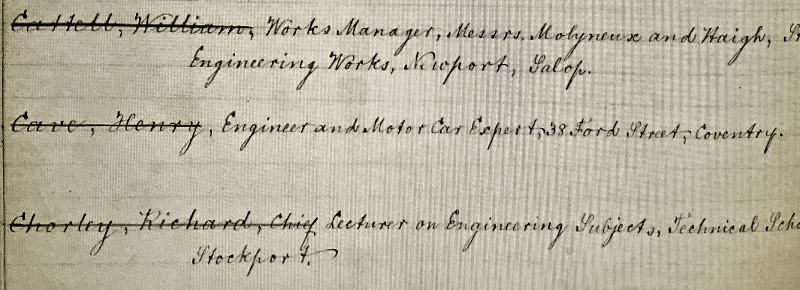 Cattell, William, Works Manager, Messrs. Molyneux and Haigh,
Engineering Works, Newport, Salop.
Cave, Henry, Engineer and Motor Car Expert, 38 Ford Street, Coventry.
Chorley, Richard, Chief Lecturer on Engineering Subjects, Technical
Stockport.